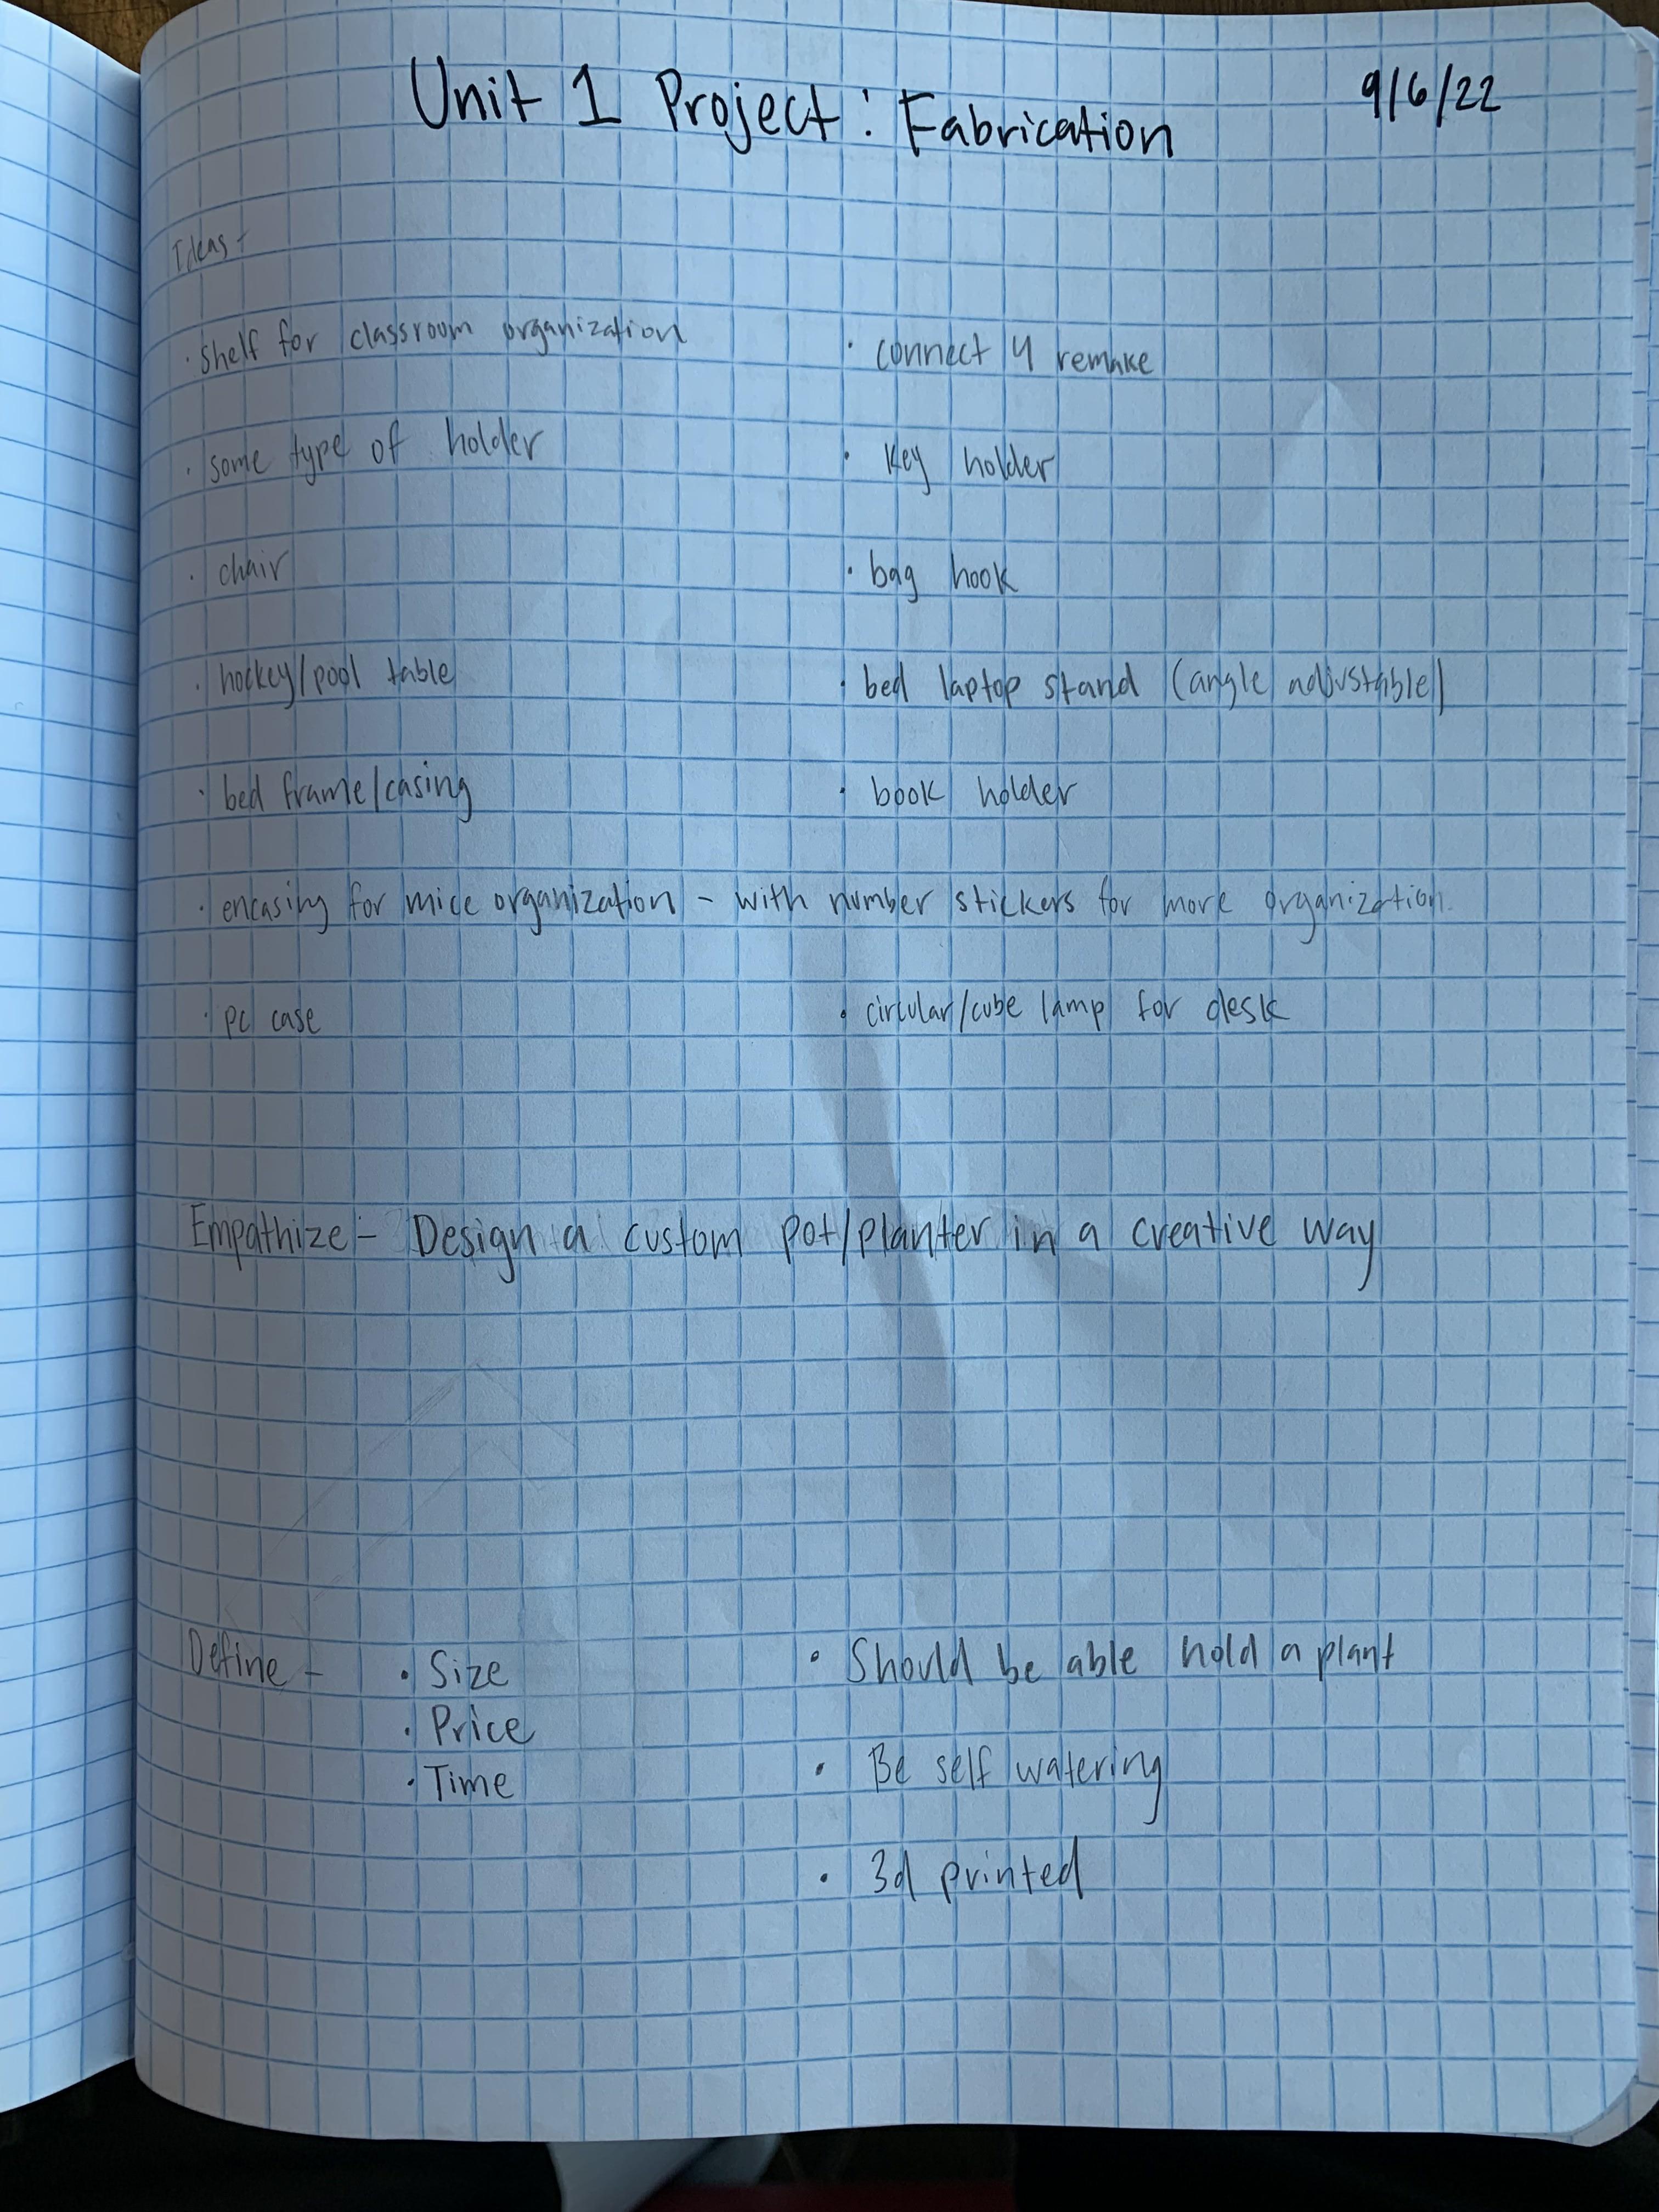 Unit 1 Project: Fabrication 9/6/22
Ideas -
· shelf for classroom organization · connect 4 remake
· some type of holder · key holder
· chair · bag hook
· hockey/pool table · bed laptop stand (angle adjustable)
· bed frame/casing · book holder
· encasing for mice organization - with number stickers for more organization.
· pc case · circular/cube lamp for desk
Empathize - Design a custom pot/planter in a creative way
Define - · Size · Should be able hold a plant
· Price
· Time · Be self watering
· 3d printed